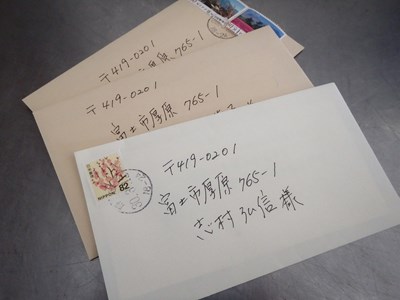 〒419-0201
富士市厚原 765-1
〒419-0201
富士市厚原 765-1
〒419-0201
富士市厚原 765-1
志村弘信様
82